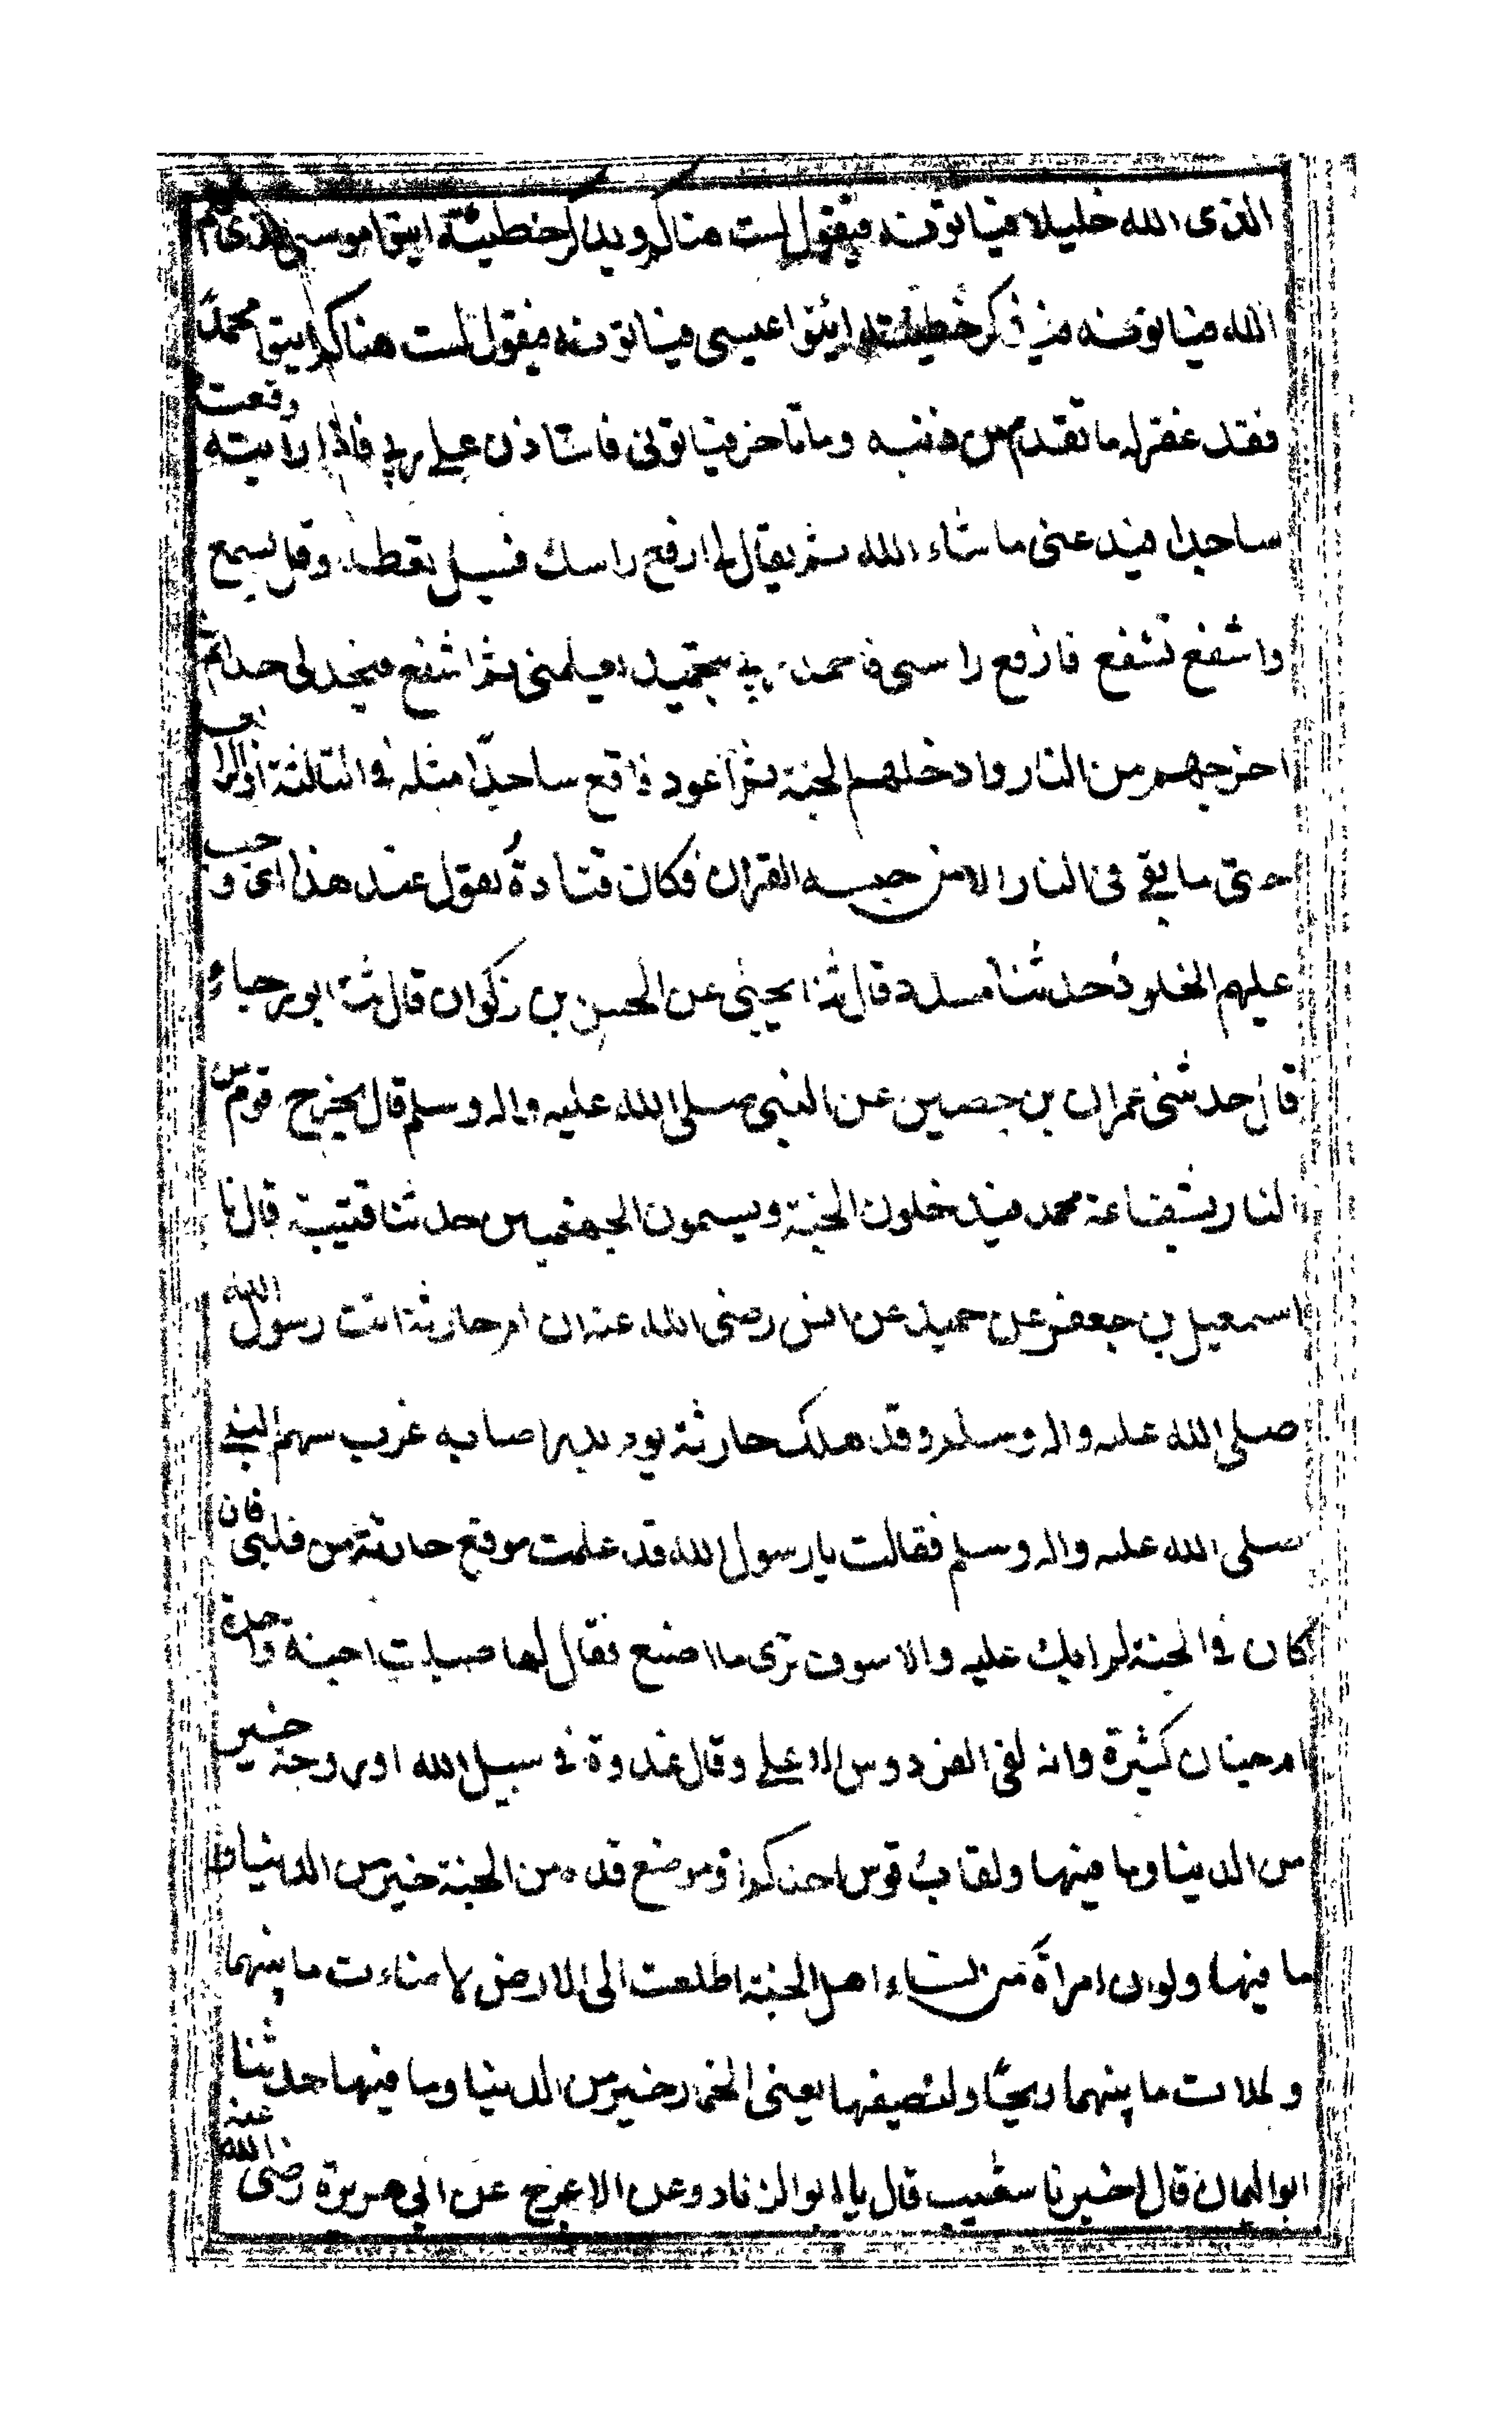 الذى الله خليلا فياتونه فيقول لست هناكم ويذكر خطيئة ايتوا موسى الذى كلم
الله فياتونه فيذكر خطيئته ايئتوا عيسى فياتونه فيقول لست هناكم ايتوا محمدًا
فقد غفر له ما تقدم من ذنبه وما تاخر فياتونى فاستاذن على ربي فاذا رايته وقعت
ساجدا فيدعنى ما شاء الله ثم يقال لى ارفع راسك فسل تعطه وقل يسمع
واشفع تشفع فارفع راسى فاحمد ربي بتحميد يعلمنى ثم اشفع فيحد لى حدا ثم
اخرجهم من النار وادخلهم الجنة ثم اعود فاقع ساجدًا مثله فى الثالثة او الرابعة
حتى ما بقى فى النار الا من حبسه القران فكان قتادة يقول عند هذا اى وجب
عليهم الخلود حدثنا مسدد قال ثنا يحيى عن الحسن بن زكوان قال ثنا ابو رجاء
قال حدثنى عمران بن حصين عن النبى صلى الله عليه واله وسلم قال يخرج قوم من
النار بشفاعة محمد فيدخلون الجنة ويسمون الجهنميين حدثنا قتيبة قال نا
اسمعيل بن جعفر عن حميد عن انس رضى الله عنه ان ام حارثة اتت رسول الله
صلى الله عليه واله وسلم وقد هلك حارثة يوم بدر اصابه غرب سهم النبى
صلى الله عليه واله وسلم فقالت يا رسول الله قد علمت موقع حارثة من قلبى فان
كان فى الجنة لم ابك عليه والا سوف ترى ما اصنع فقال لها هبلت اجنة واحدة
ام جنان كثيرة وانه لفى الفردوس الاعلى وقال غدوة فى سبيل الله او روحة خير
من الدنيا وما فيها ولقاب قوس احدكم او موضع قده من الجنة خير من الدنيا و
ما فيها ولو ان امراة من نساء اهل الجنة اطلعت الى الارض لاضاءت ما بينهما
ولملات ما بينهما ريحًا ولنصيفها يعنى الخمار خير من الدنيا وما فيها حدثنا
ابو اليمان قال اخبرنا شعيب قال نا ابو الزناد وعن الاعرج عن ابي هريرة رضى الله عنه